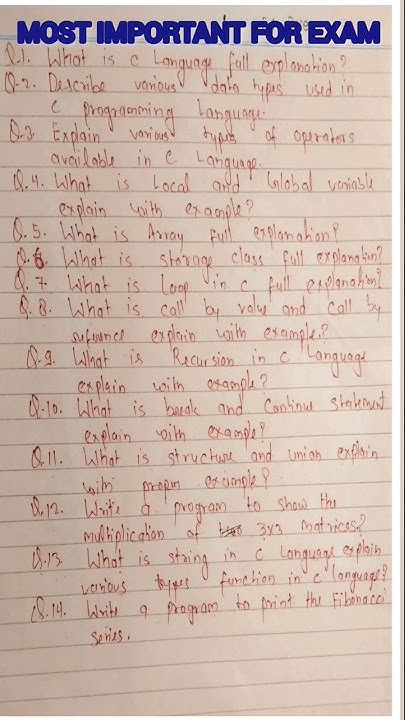 MOST IMPORTANT FOR EXAM
Q.1. What is c Language full explanation?
Q.2. Describe various data types used in
C programming Language.
Q.3 Explain various types of operators
available in C Language.
Q.4. What is Local and Global variable
explain with example?
Q.5. What is Array full explanation?
Q.6. What is storage class full explanation?
Q.7. What is Loop in c full explanation?
Q.8. What is call by value and call by
refrence explain with example?
Q.9. What is Recursion in C Language
explain with example?
Q.10. What is break and Continue statement
explain with example?
Q.11. What is structure and union explain
with proper example?
Q.12. Write a program to show the
multiplication of 3x3 matrices?
Q.13 What is string in C Language explain
various types function in c language?
Q.14. Write a program to print the Fibonacci
series.